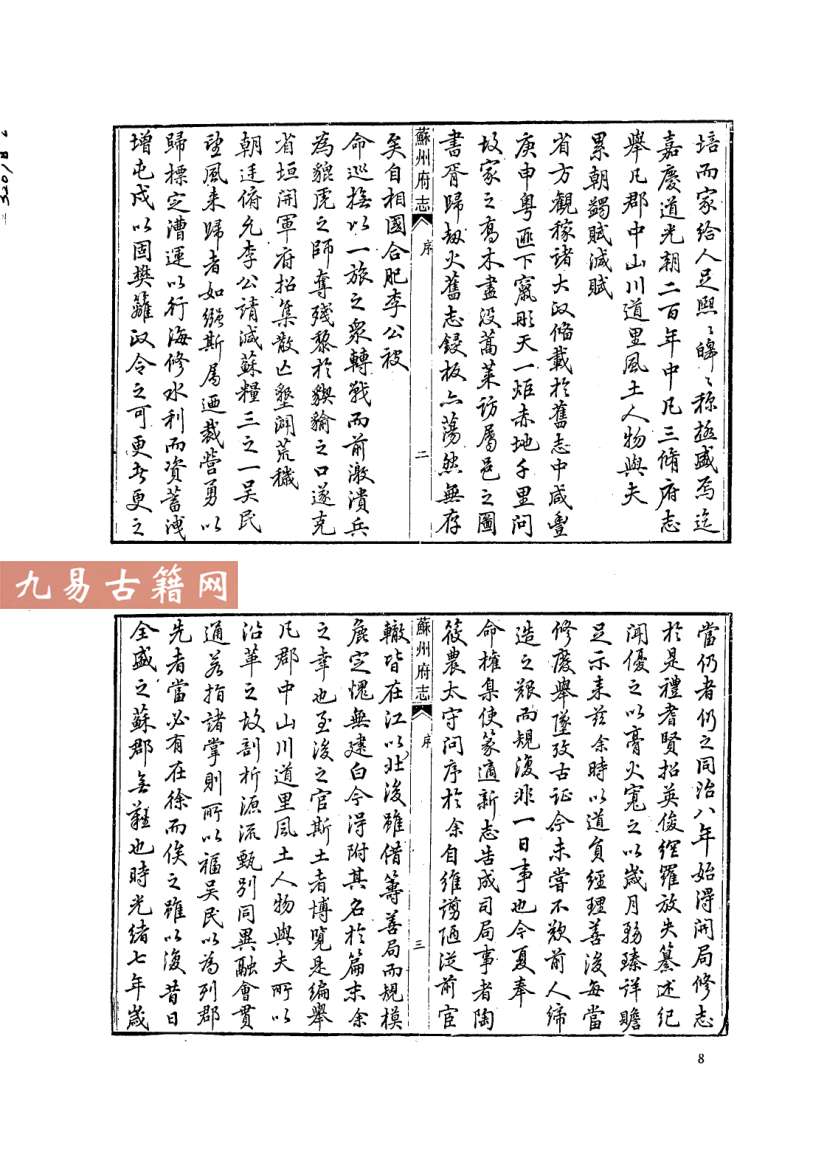 培而家給人足熙〻皥〻称極盛焉迄
嘉慶道光朝二百年中凡三脩府志
舉凡郡中山川道里風土人物與夫
累朝蠲賦減賦
省方觀稼諸大政備載於舊志中咸豐
庚申粵匪下竄彤天一炬赤地千里問
故家之喬木盡没蒿萊訪屬邑之圖
書胥歸劫火舊志録板亦蕩然無存
蘇州府志
序
二
矣自相國合肥李公被
命巡撫以一旅之衆轉戰而前激潰兵
為貔虎之師奪殘黎於猰貐之口遂克
省垣開軍府招集散亡墾闢荒穢
朝廷俯允李公請減蘇糧三之一吳民
望風来歸者如繈斯屬迺裁營勇以
歸標定漕運以行海修水利而資蓄洩
增屯戍以固樊籬政令之可更者更之
九易古籍网
當仍者仍之同治八年始得開局修志
於是禮耆賢招英俊網羅放失纂述紀
聞優之以膏火寬之以歲月務臻詳贍
足示来茲余時以道員經理善後每當
修廢舉墜攷古证今未嘗不歎前人締
造之艱而規復非一日事也今夏奉
命權臬使篆適新志告成司局事者陶
筱農太守問序於余自維謭陋從前宦
蘇州府志
序
三
轍皆在江以北後雖借籌善局而規模
麤定愧無建白今得附其名於篇末余
之幸也至後之官斯土者博覽是編舉
凡郡中山川道里風土人物與夫所以
沿革之故剖析源流甄别同異融會貫
通若指諸掌則所以福吳民以為列郡
先者當必有在徐而俟之雖以復昔日
全盛之蘇郡無難也時光緒七年歲
8